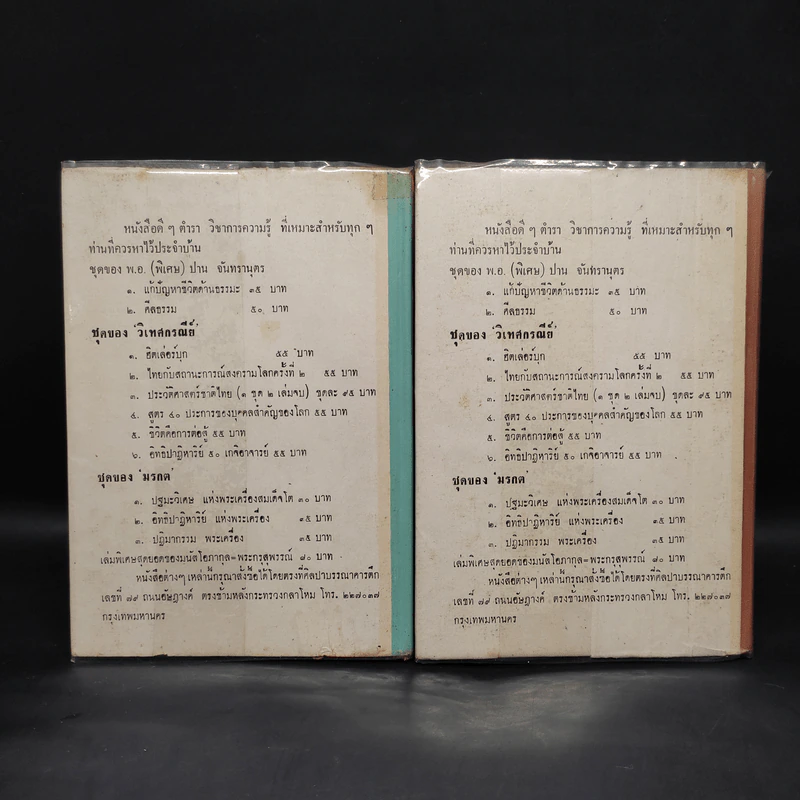 หนังสือดี ๆ ตำรา วิชาการความรู้ ที่เหมาะสำหรับทุก ๆ
ท่านที่ควรหาไว้ประจำบ้าน
ชุดของ พ.อ. (พิเศษ) ปาน จันทรานุตร
๑. แก้ปัญหาชีวิตด้านธรรมะ ๓๕ บาท
๒. ศีลธรรม ๕๐ บาท
ชุดของ 'วิเทศกรณีย์'
๑. ฮิตเล่อร์บุก ๕๕ บาท
๒. ไทยกับสถานะการณ์สงครามโลกครั้งที่ ๒ ๕๕ บาท
๓. ประวัติศาสตร์ชาติไทย (๑ ชุด ๒ เล่มจบ) ชุดละ ๙๕ บาท
๔. สูตร ๔๐ ประการของบุคคลสำคัญของโลก ๕๕ บาท
๕. ชีวิตคือการต่อสู้ ๕๕ บาท
๖. อิทธิปาฏิหาริย์ ๕๐ เกจิอาจารย์ ๕๕ บาท
ชุดของ 'มรกต'
๑. ปฐมะวิเศษ แห่งพระเครื่องสมเด็จโต ๓๐ บาท
๒. อิทธิปาฏิหาริย์ แห่งพระเครื่อง ๓๕ บาท
๓. ปฏิมากรรม พระเครื่อง ๓๕ บาท
เล่มพิเศษสุดยอดของมนัสโอภากุล=พระกรุสุพรรณ์ ๘๐ บาท
หนังสือต่างๆ เหล่านี้กรุณาสั่งซื้อได้โดยตรงที่ศิลปาบรรณาคารตึก
เลขที่ ๗๙ ถนนอัษฎางค์ ตรงข้ามหลังกระทรวงกลาโหม โทร. ๒๒๗๐๓๗
กรุงเทพมหานคร
หนังสือดี ๆ ตำรา วิชาการความรู้ ที่เหมาะสำหรับทุก ๆ
ท่านที่ควรหาไว้ประจำบ้าน
ชุดของ พ.อ. (พิเศษ) ปาน จันทรานุตร
๑. แก้ปัญหาชีวิตด้านธรรมะ ๓๕ บาท
๒. ศีลธรรม ๕๐ บาท
ชุดของ 'วิเทศกรณีย์'
๑. ฮิตเล่อร์บุก ๕๕ บาท
๒. ไทยกับสถานะการณ์สงครามโลกครั้งที่ ๒ ๕๕ บาท
๓. ประวัติศาสตร์ชาติไทย (๑ ชุด ๒ เล่มจบ) ชุดละ ๙๕ บาท
๔. สูตร ๔๐ ประการของบุคคลสำคัญของโลก ๕๕ บาท
๕. ชีวิตคือการต่อสู้ ๕๕ บาท
๖. อิทธิปาฏิหาริย์ ๕๐ เกจิอาจารย์ ๕๕ บาท
ชุดของ 'มรกต'
๑. ปฐมะวิเศษ แห่งพระเครื่องสมเด็จโต ๓๐ บาท
๒. อิทธิปาฏิหาริย์ แห่งพระเครื่อง ๓๕ บาท
๓. ปฏิมากรรม พระเครื่อง ๓๕ บาท
เล่มพิเศษสุดยอดของมนัสโอภากุล=พระกรุสุพรรณ์ ๘๐ บาท
หนังสือต่างๆ เหล่านี้กรุณาสั่งซื้อได้โดยตรงที่ศิลปาบรรณาคารตึก
เลขที่ ๗๙ ถนนอัษฎางค์ ตรงข้ามหลังกระทรวงกลาโหม โทร. ๒๒๗๐๓๗
กรุงเทพมหานคร